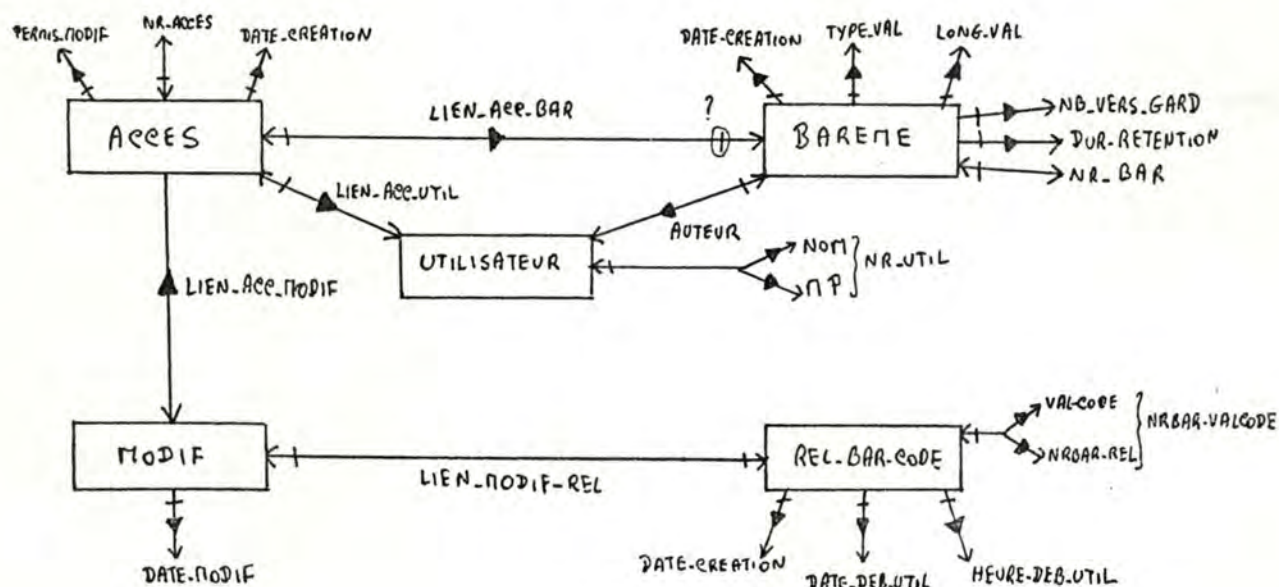 PERMIS_MODIF
NR_ACCES
DATE_CREATION
DATE-CREATION
TYPE_VAL
LONG_VAL
ACCES
LIEN_ACC_BAR
?
BAREME
NB_VERS_GARD
DUR-RETENTION
NR_BAR
LIEN_ACC_UTIL
AUTEUR
UTILISATEUR
NOM
MP
NR_UTIL
LIEN_ACC_MODIF
MODIF
LIEN_MODIF-REL
REL_BAR_CODE
VAL-CODE
NRBAR-REL
NRBAR-VALCODE
DATE-MODIF
DATE-CREATION
DATE-DEB_UTIL
HEURE-DEB_UTIL